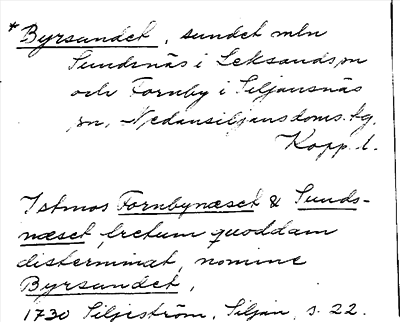 *Byrsundet, sundet mln
Sundsnäs i Leksands sn
och Fornby i Siljansnäs
sn, Nedansiljans doms. hg.
Kopp. l.
Istmos Fornbynæset & Sunds-
næset, fretum quoddam
disterminat, nomine
Byrsundet,
1730 Siljeström, Siljan, s. 22.